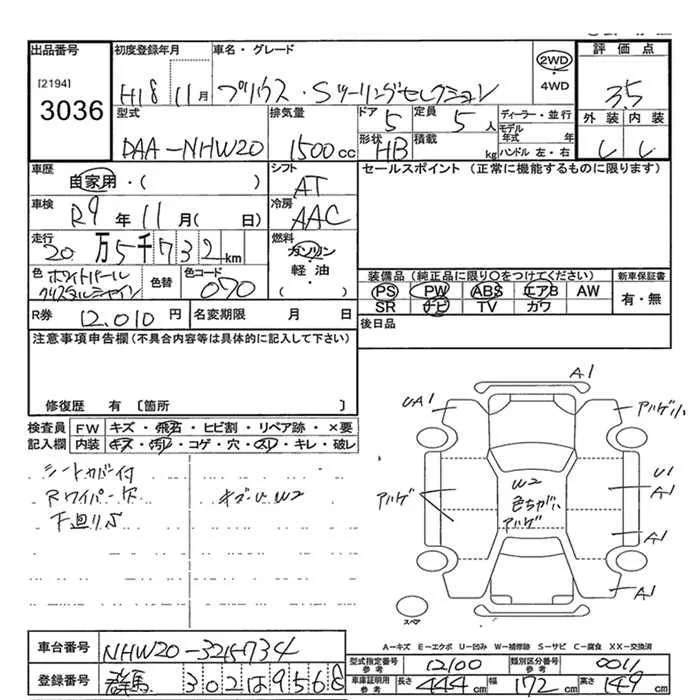 出品番号 初度登録年月 車名・グレード 2WD・4WD 評価点
[2194]
3036
H18 11月 プリウス・Sツーリングセレクション 3.5
型式 排気量 ドア 定員 ディーラー・並行 外装 内装
DAA-NHW20 1500cc 5 5人 モデル年式 年
形状 積載
HB kg ハンドル 左・右
車歴 シフト セールスポイント(正常に機能するものに限ります)
自家用・( ) AT
車検 冷房
R9年11月( 日) AAC
走行 燃料
20万5千732km ガソリン
軽油・
( )
色 色替 色コード
ホワイトパール
クリスタルシャイン 070
装備品(純正品に限り〇をつけてください) 新車保証書
PS PW ABS エアB AW 有・無
SR ナビ TV カワ
R券 12,010円 名変期限 月 日 後日品
注意事項申告欄(不具合内容等は具体的に記入して下さい)
修復歴 有 [箇所 ]
検査員 FW キズ・飛石・ヒビ割・リペア跡・×要
記入欄 内装 キズ・汚レ・コゲ・穴・スリ・キレ・破レ
シートカバー付
Rワイパー欠
下廻りS
A1
UA1
アハゲ
W2
色ちがい
アハゲ
アハゲ
U1
A1
A1
A1
スペア
A-キズ E-エクボ U-凹み W-補修跡 S-サビ C-腐食 XX-交換済
車台番号 NHW20-3215734
登録番号 群馬 302 は 9568
型式指定番号 参考 12100 類別区分番号 参考 0011
車庫証明用 参考 長さ 444cm 幅 172cm 高さ 149cm